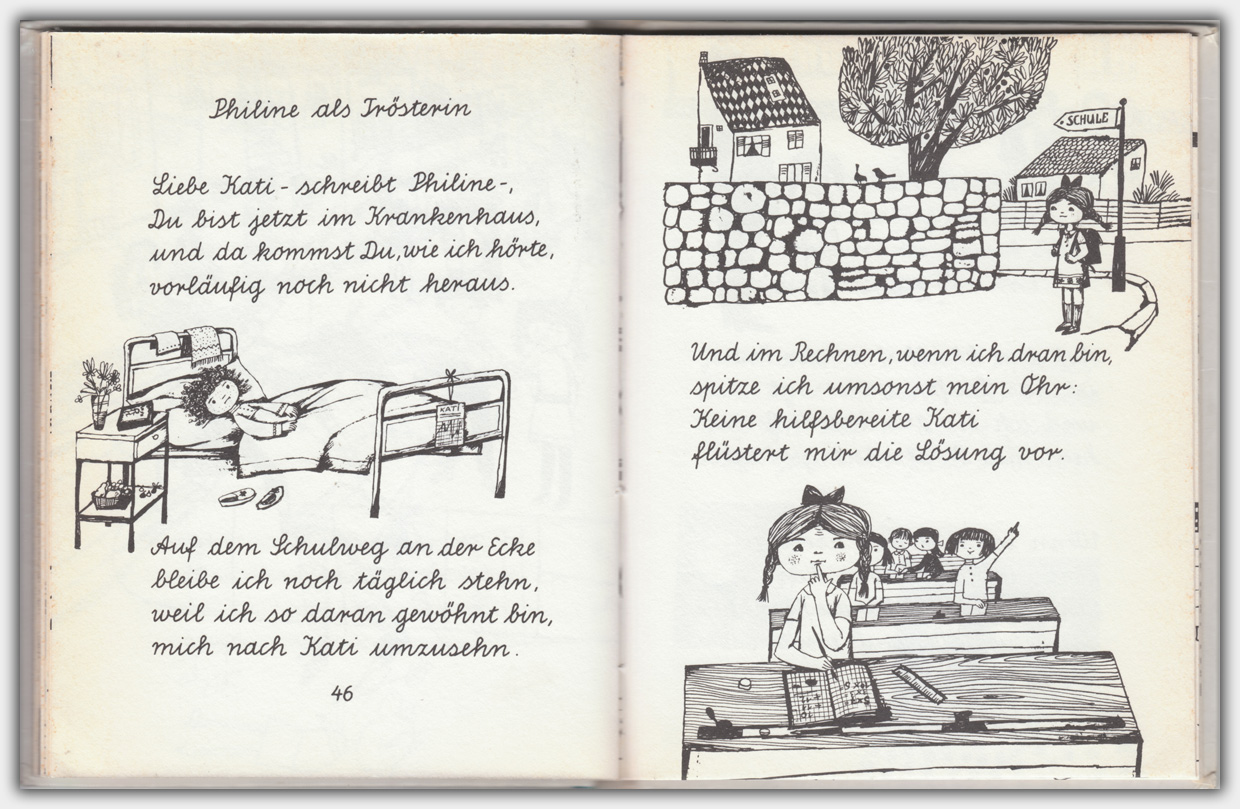 Philine als Trösterin
Liebe Kati - schreibt Philine -,
Du bist jetzt im Krankenhaus,
und da kommst Du, wie ich hörte,
vorläufig noch nicht heraus.
KATI
Auf dem Schulweg an der Ecke
bleibe ich noch täglich stehn,
weil ich so daran gewöhnt bin,
mich nach Kati umzusehn.
46
SCHULE
Und im Rechnen, wenn ich dran bin,
spitze ich umsonst mein Ohr:
Keine hilfsbereite Kati
flüstert mir die Lösung vor.